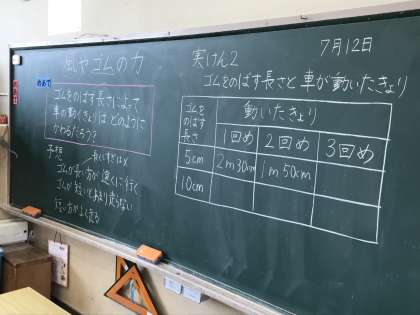 風やゴムの力
めあて
ゴムをのばす長さによって
車の動くきょりは どのように
かわるだろう?
予想
ゴムが長い方が 遠くに行く
ゴムが短いとあまり走らない
実けん2
7月12日
ゴムをのばす長さと車が動いたきょり
ゴムをのばす長さ
動いたきょり
1回め 2回め 3回め
5cm 2m30cm 1m50cm
10cm